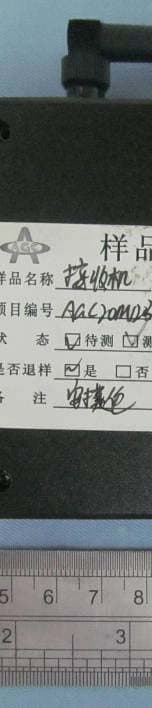 AGC
样品
样品名称 接收机
项目编号
状 态 ☑待测 ☑测
是否退样 ☑是 ☐否
备 注
5 6 7 8
2 3